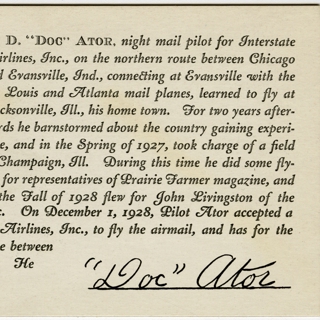 D. "Doc" Ator, night mail pilot for Interstate
irlines, Inc., on the northern route between Chicago
d Evansville, Ind., connecting at Evansville with the
Louis and Atlanta mail planes, learned to fly at
cksonville, Ill., his home town. For two years after-
rds he barnstormed about the country gaining experi-
e, and in the Spring of 1927, took charge of a field
Champaign, Ill. During this time he did some fly-
for representatives of Prairie Farmer magazine, and
the Fall of 1928 flew for John Livingston of the
c. On December 1, 1928, Pilot Ator accepted a
Airlines, Inc., to fly the airmail, and has for the
e between
He
"Doc" Ator